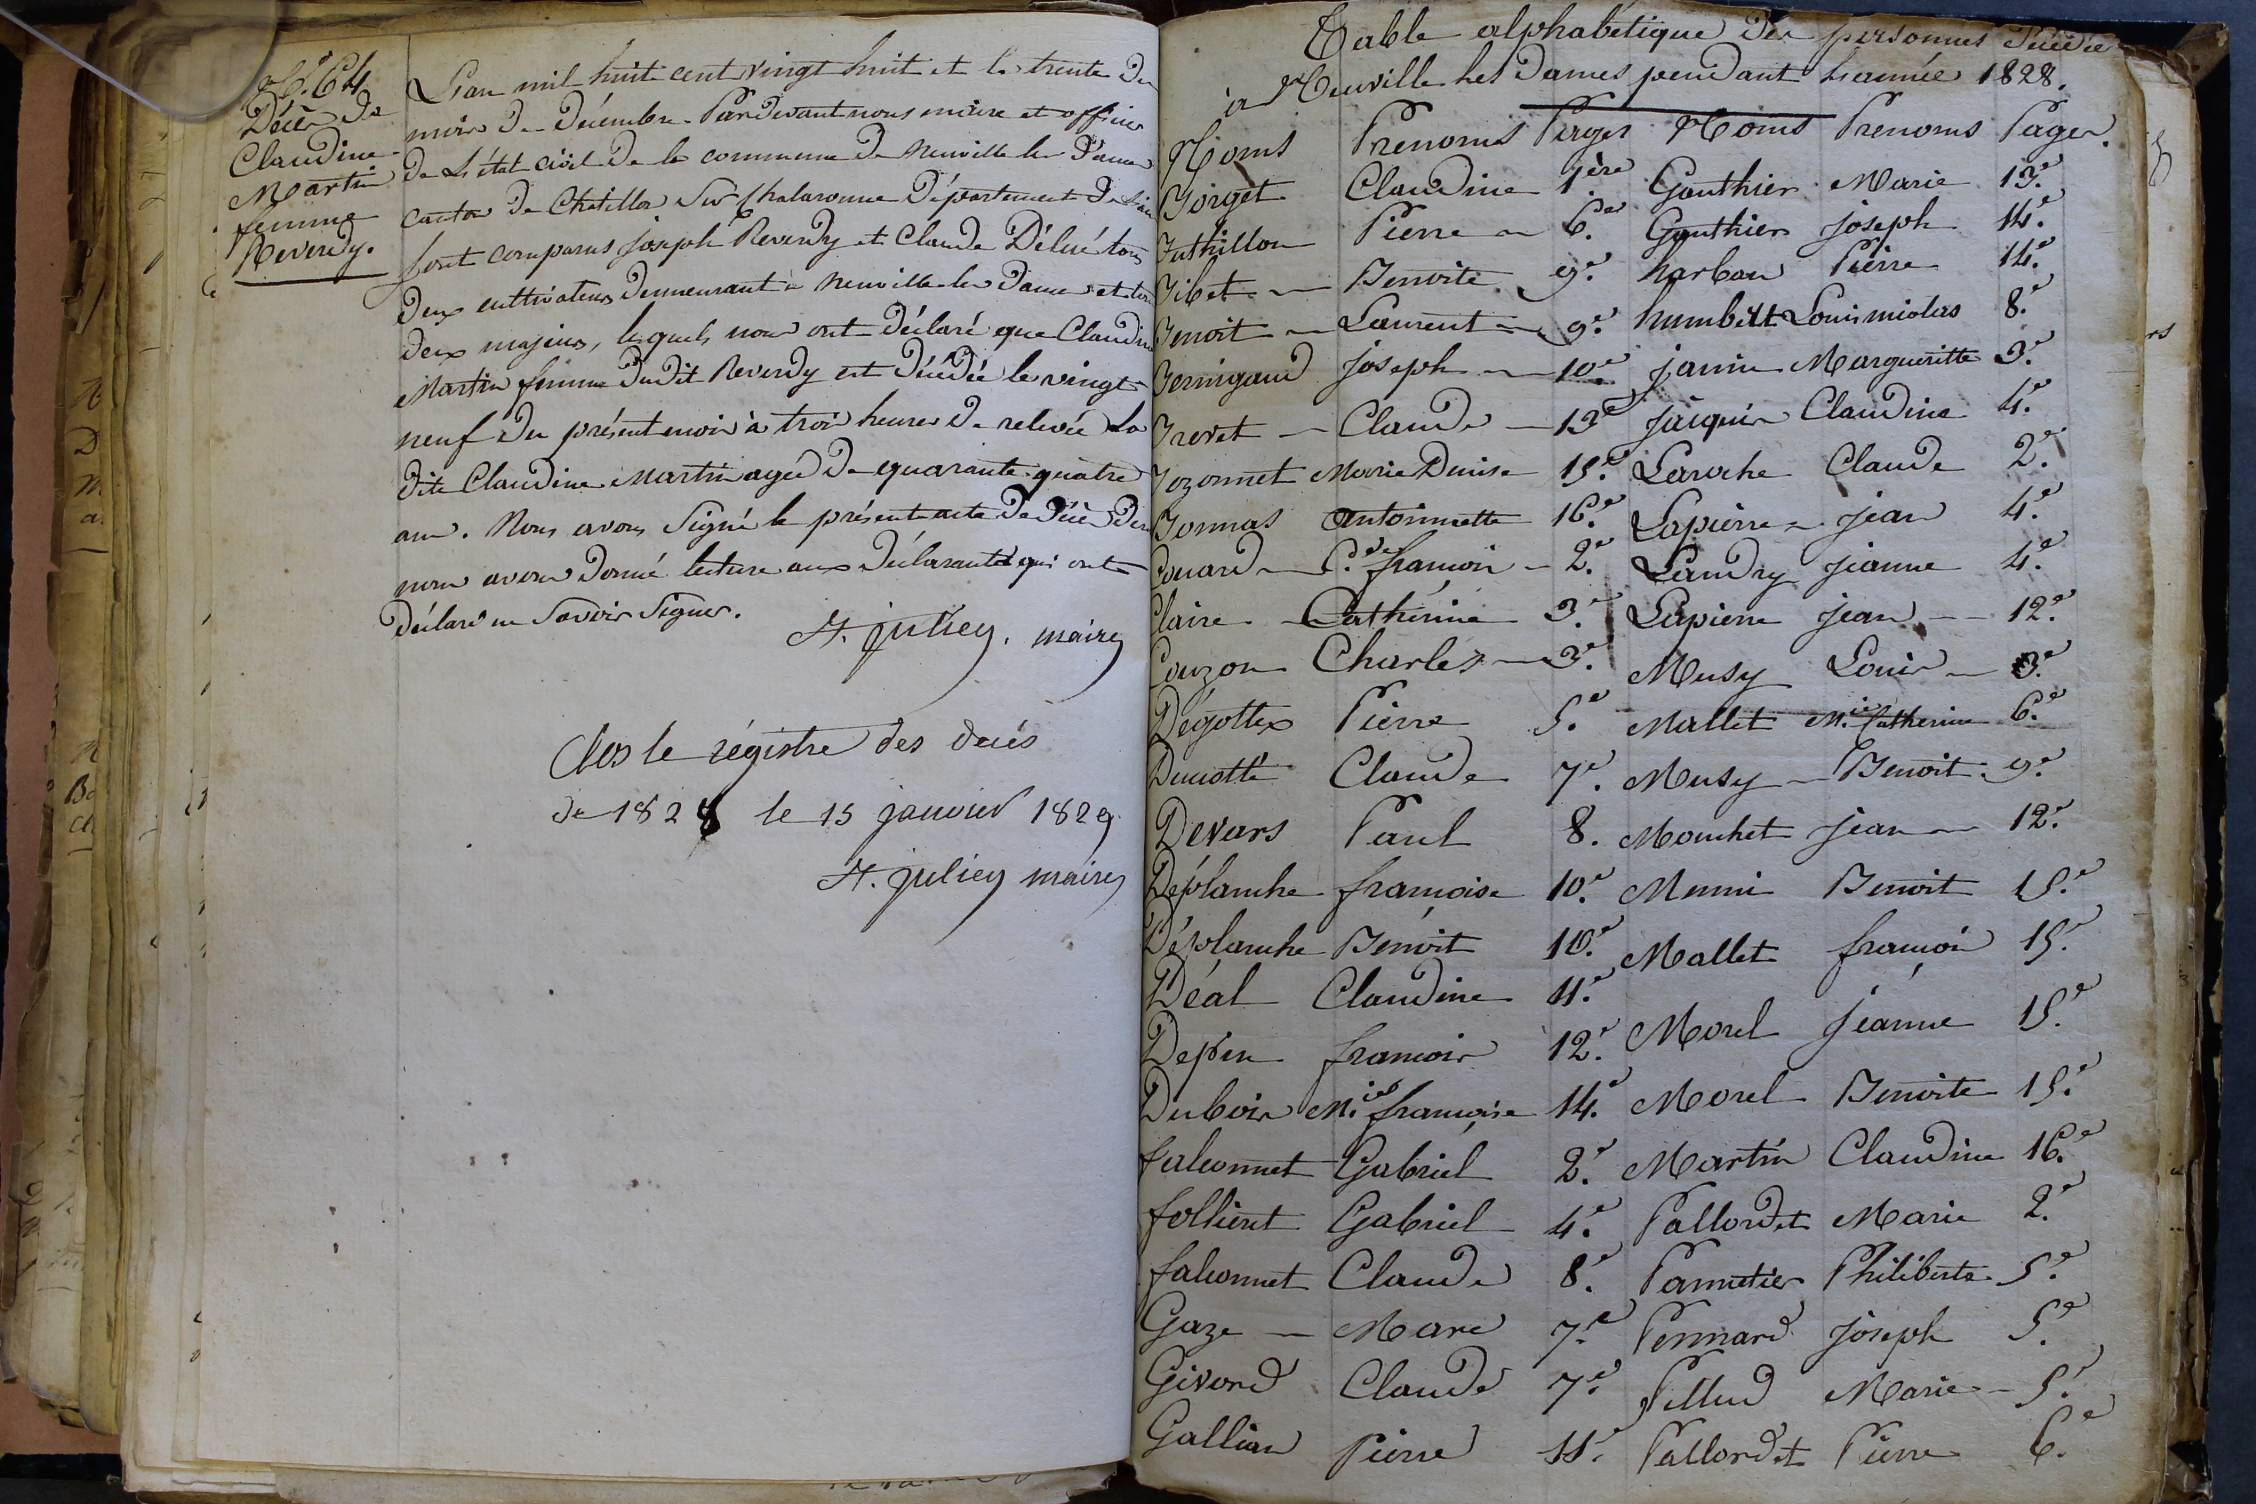 N.º 64
Décès de
Claudine
Martin
femme
Reverdy.
L'an mil huit cent vingt huit et le trente du
mois de Décembre. Pardevant nous maire et officier
de L'état civil de la commune de neuville les Dames
canton de Chatillon sur Chalaronne Département de L'ain
sont comparus joseph Reverdy et Claude tous
deux cultivateurs demeurant à neuville les Dames et tous
deux majeurs, lesquels nous ont déclaré que Claudine
Martin femme dudit Reverdy est décédée le vingt
neuf du présent mois à trois heures de relevée la
dite Claudine Martin agée de quarante quatre
ans. Nous avons signé le présent acte de décès dont
nous avons donné lecture aux déclarants qui ont
déclaré ne savoir signer.
St. julien, maire
Clos le régistre des décès
de 1828 le 15 janvier 1829
St. julien maire
Table alphabétique des personnes décédées
à Neuville les Dames pendant l'année 1828.
Noms Prenoms Pages Noms Prenoms Pages.
Borget Claudine 1ère Gauthier Marie 13.e
Buthillon Pierre 6.e Gauthier joseph 14.e
Bibet Benoite 9.e Pierre 14.e
Benoit Laurent 9.e humbert Louis 8.e
Bernigaud joseph 10e janin Margueritte 3.e
Brevet Claude 13e jacquin Claudine 4.e
Bozonnet Marie Denise 15.e Laroche Claude 2.e
Bonnas antoinette 16.e Lapierre jean 4.e
Couard françois 2.e Landry jeanne 4.e
Claire Cathérine 3.e Lapierre jean 12.e
Couzon Charles 3.e Musy Louis 3.e
Dégottex Pierre 5.e Mallet M.ie Catherine 6.e
Claude 7.e Musy Benoit 9.e
Devars Paul 8. Mouchet jean 12.e
Déplanche françoise 10.e Benoit 15.e
Déplanche Benoit 10.e Mallet françois 15.e
Déal Claudine 11.e Morel jeanne 15.e
françois 12.e Morel Benoite 15.e
Dubois M.ie françoise 14.e Martin Claudine 16.e
falconnet Gabriel 2.e Pallordet Marie 2.e
follient Gabriel 4.e Pannetier Philiberte 5.e
falconnet Claude 8.e Pennard joseph 5.e
Gaze Marc 7.e Pillud Marie 5.e
Givord Claude 7.e Pallordet Pierre 6.e
Gallian Pierre 11.e